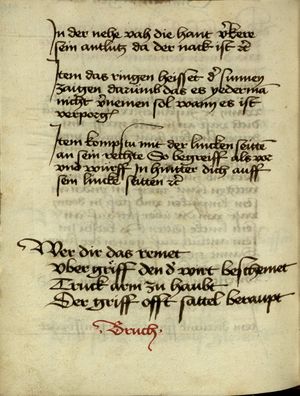 In der nehe vah die hant v͛kere
sein antlutz da der nack ist ⁊c
Item das ringen heisset d͛ sunnen
zaigen darūmb das es yederma
nicht v͛nemen sol wann es ist
verporgē
Item kompstu mit der lincken seittē
an sein rechte So begreiff als vor
vnd würff In hintter dich auff
sein lincke seitten ⁊c
Wer dir das remet
Vber griff den d͛ wirt beschemet
Truck arm zu haubt
Der griff offt sattel beraupt
Bruch